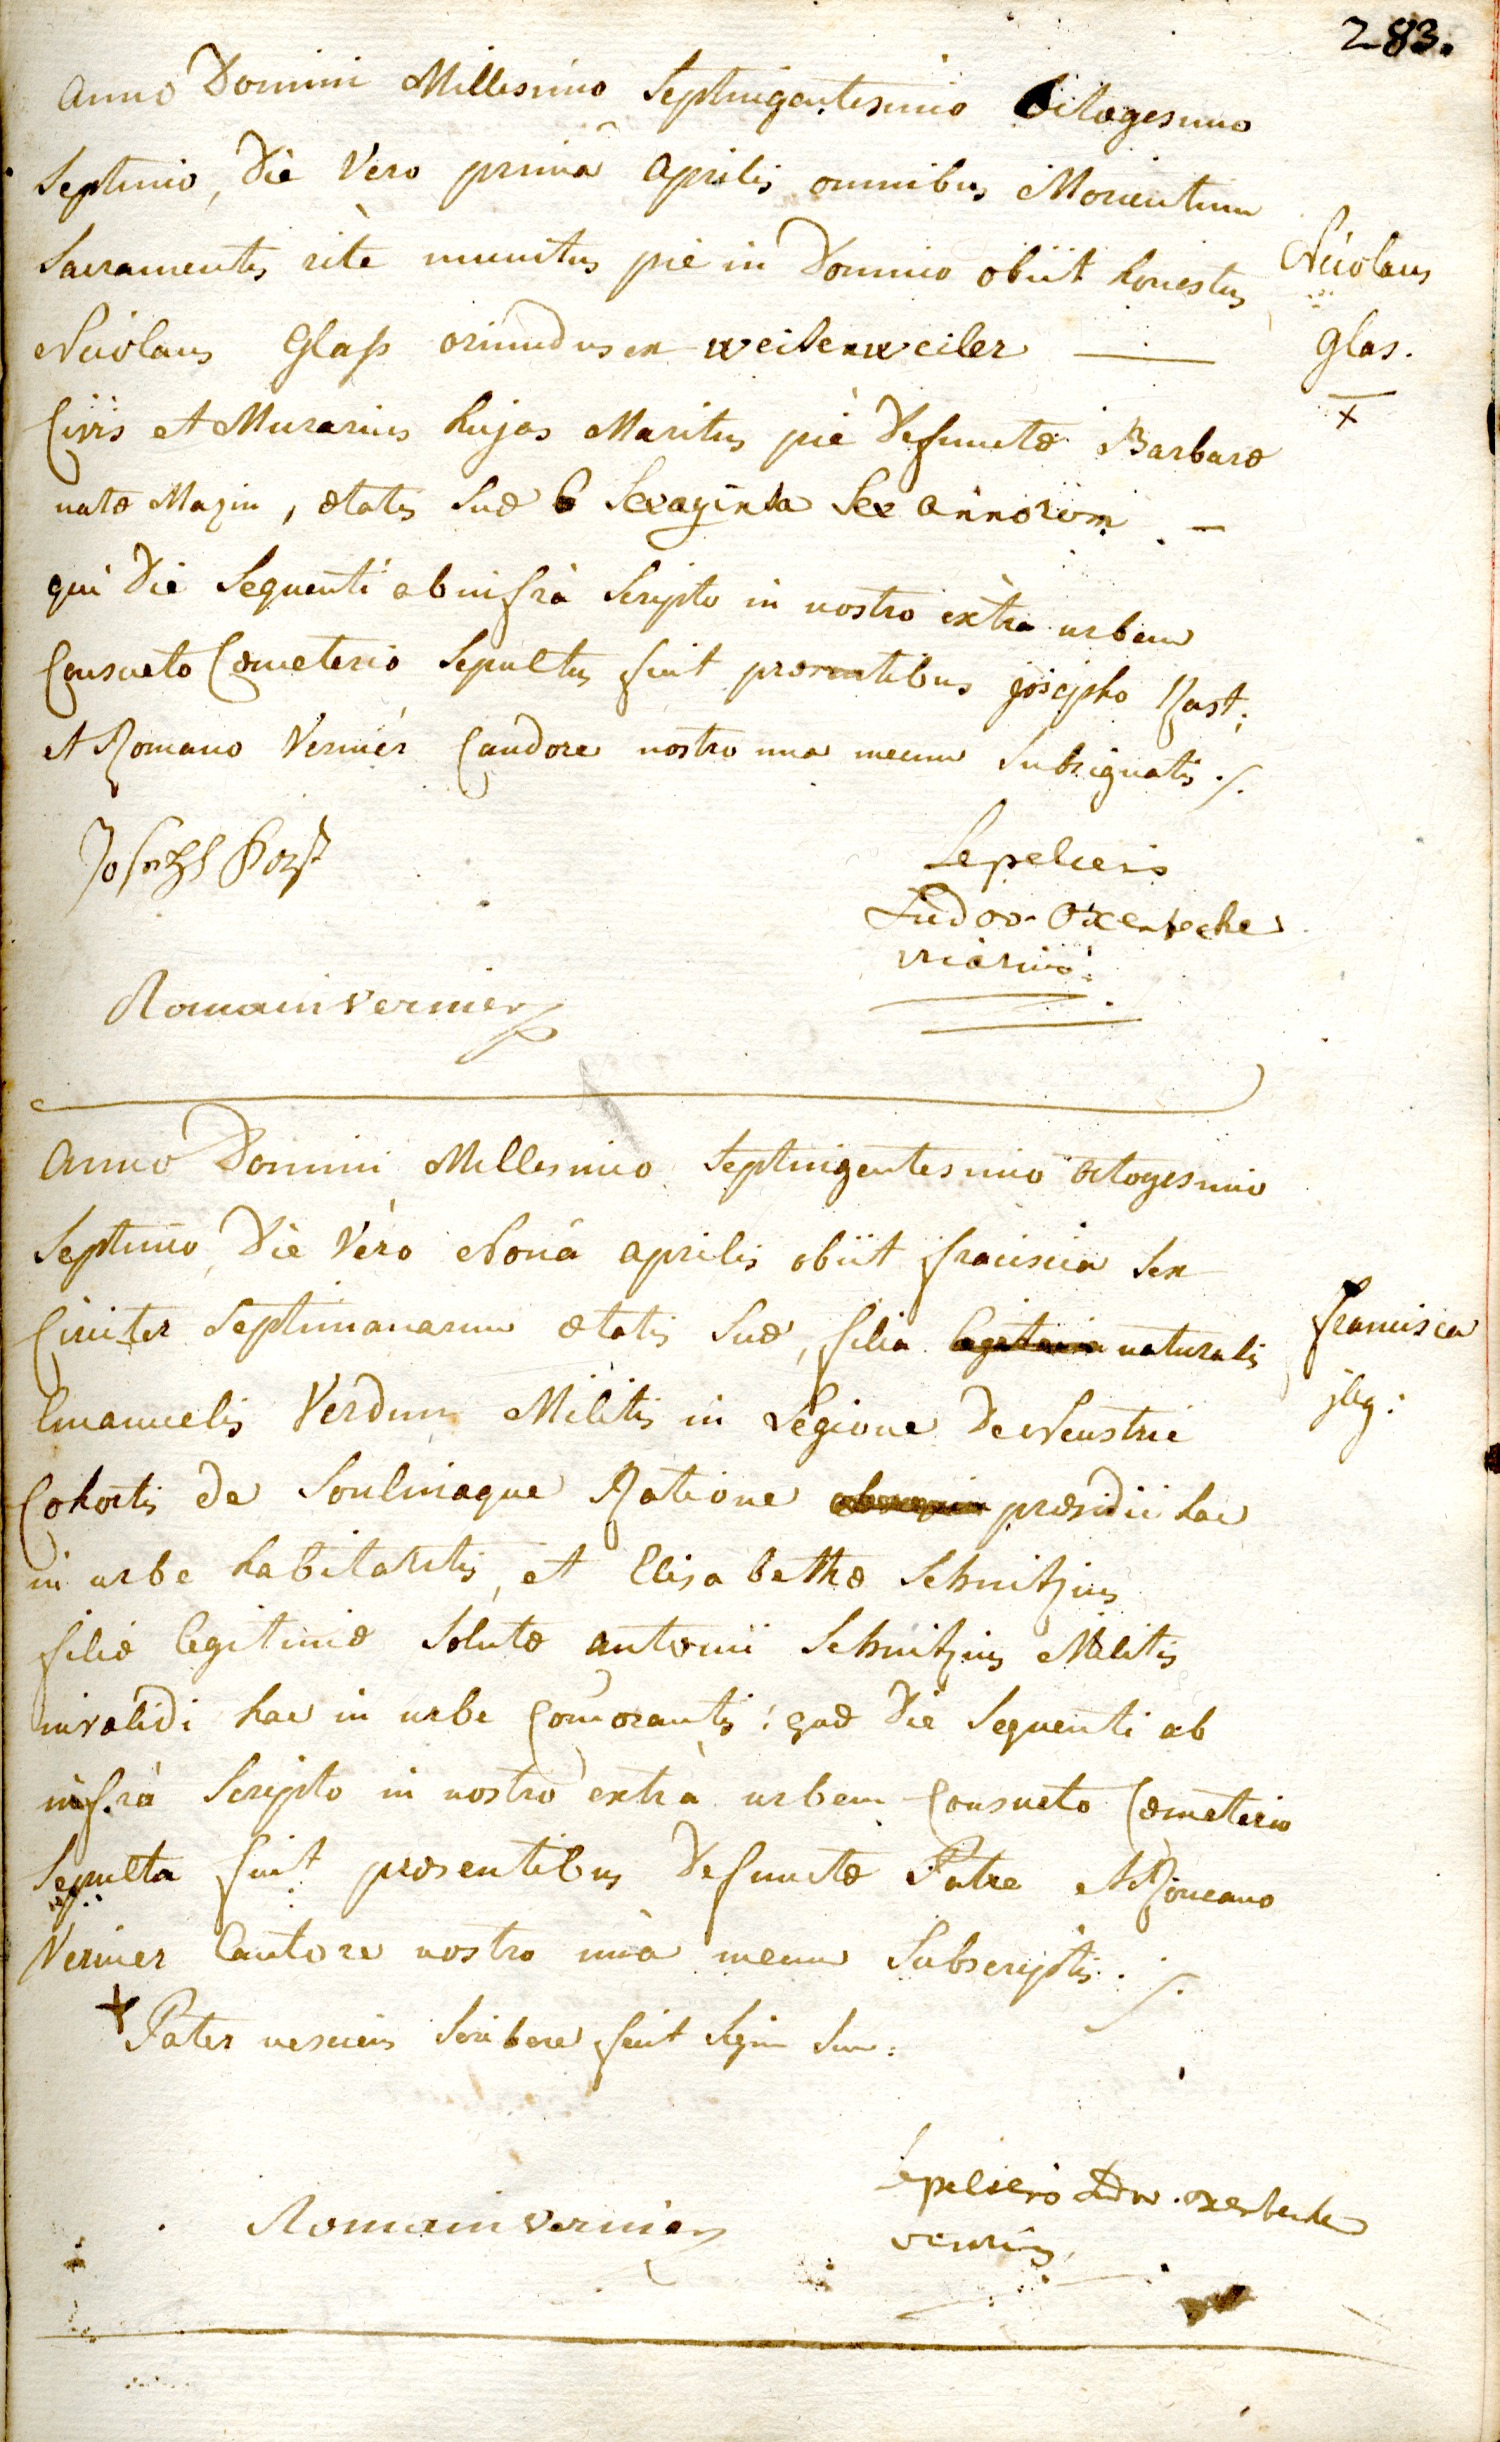 283.
Anno Domini Millesimo Septingentesimo Octogesimo
Septimo, Die Vero primâ Aprilis omnibus Morientium
Sacramentis rite munitus pie in Domino obiit honestus
Nicolaus Glass oriundus ex weiserweiler —
Civis et Murarius hujas Maritus piè Defunctæ Barbaræ
natæ Mazin, ætatis suæ Sexaginta Sex annorum. —
qui Die Sequenti ab infrà Scripto in nostro extra urbem
Consueto Cœmeterio Sepultus fuit præsentibus josepho Rast;
et Romano Vernier Candore nostro una mecum Subsignatis ./.
Nicolaus
Glas.
x
Joseph
Sepelieris
Ludov. Oxenbecher
vicarius
Romain vernier
Anno Domini Millesimo Septingentesimo octogesimo
Septimo, Die Vèro Nonâ aprilis obiit fraciscia Sex
Circiter Septimanarum ætatis suæ, filia naturalis
Emanuelis Verdun Militis in Legione De Neustrie
Cohortis de Soulinaque Ratione præsidii hac
in urbe habitantis, et Elisabethæ Schnitzius
filiæ legitimæ Solutæ antonii Schnitzius Militis
invalidi hac in urbe Comorantis: quæ Die Sequenti ab
infrà Scripto in nostro extrà urbem Consueto Cœmeterio
Sepulta fuit præsentibus Defunctæ Patre et Romano
Vernier Cantore nostro unà mecum Subscriptis ./.
francisca
jleg:
+ Pater nesciens Scribere fecit Sign Su:
Romain vernier
Sepelieris Ludov. oxenbecher
vicarius